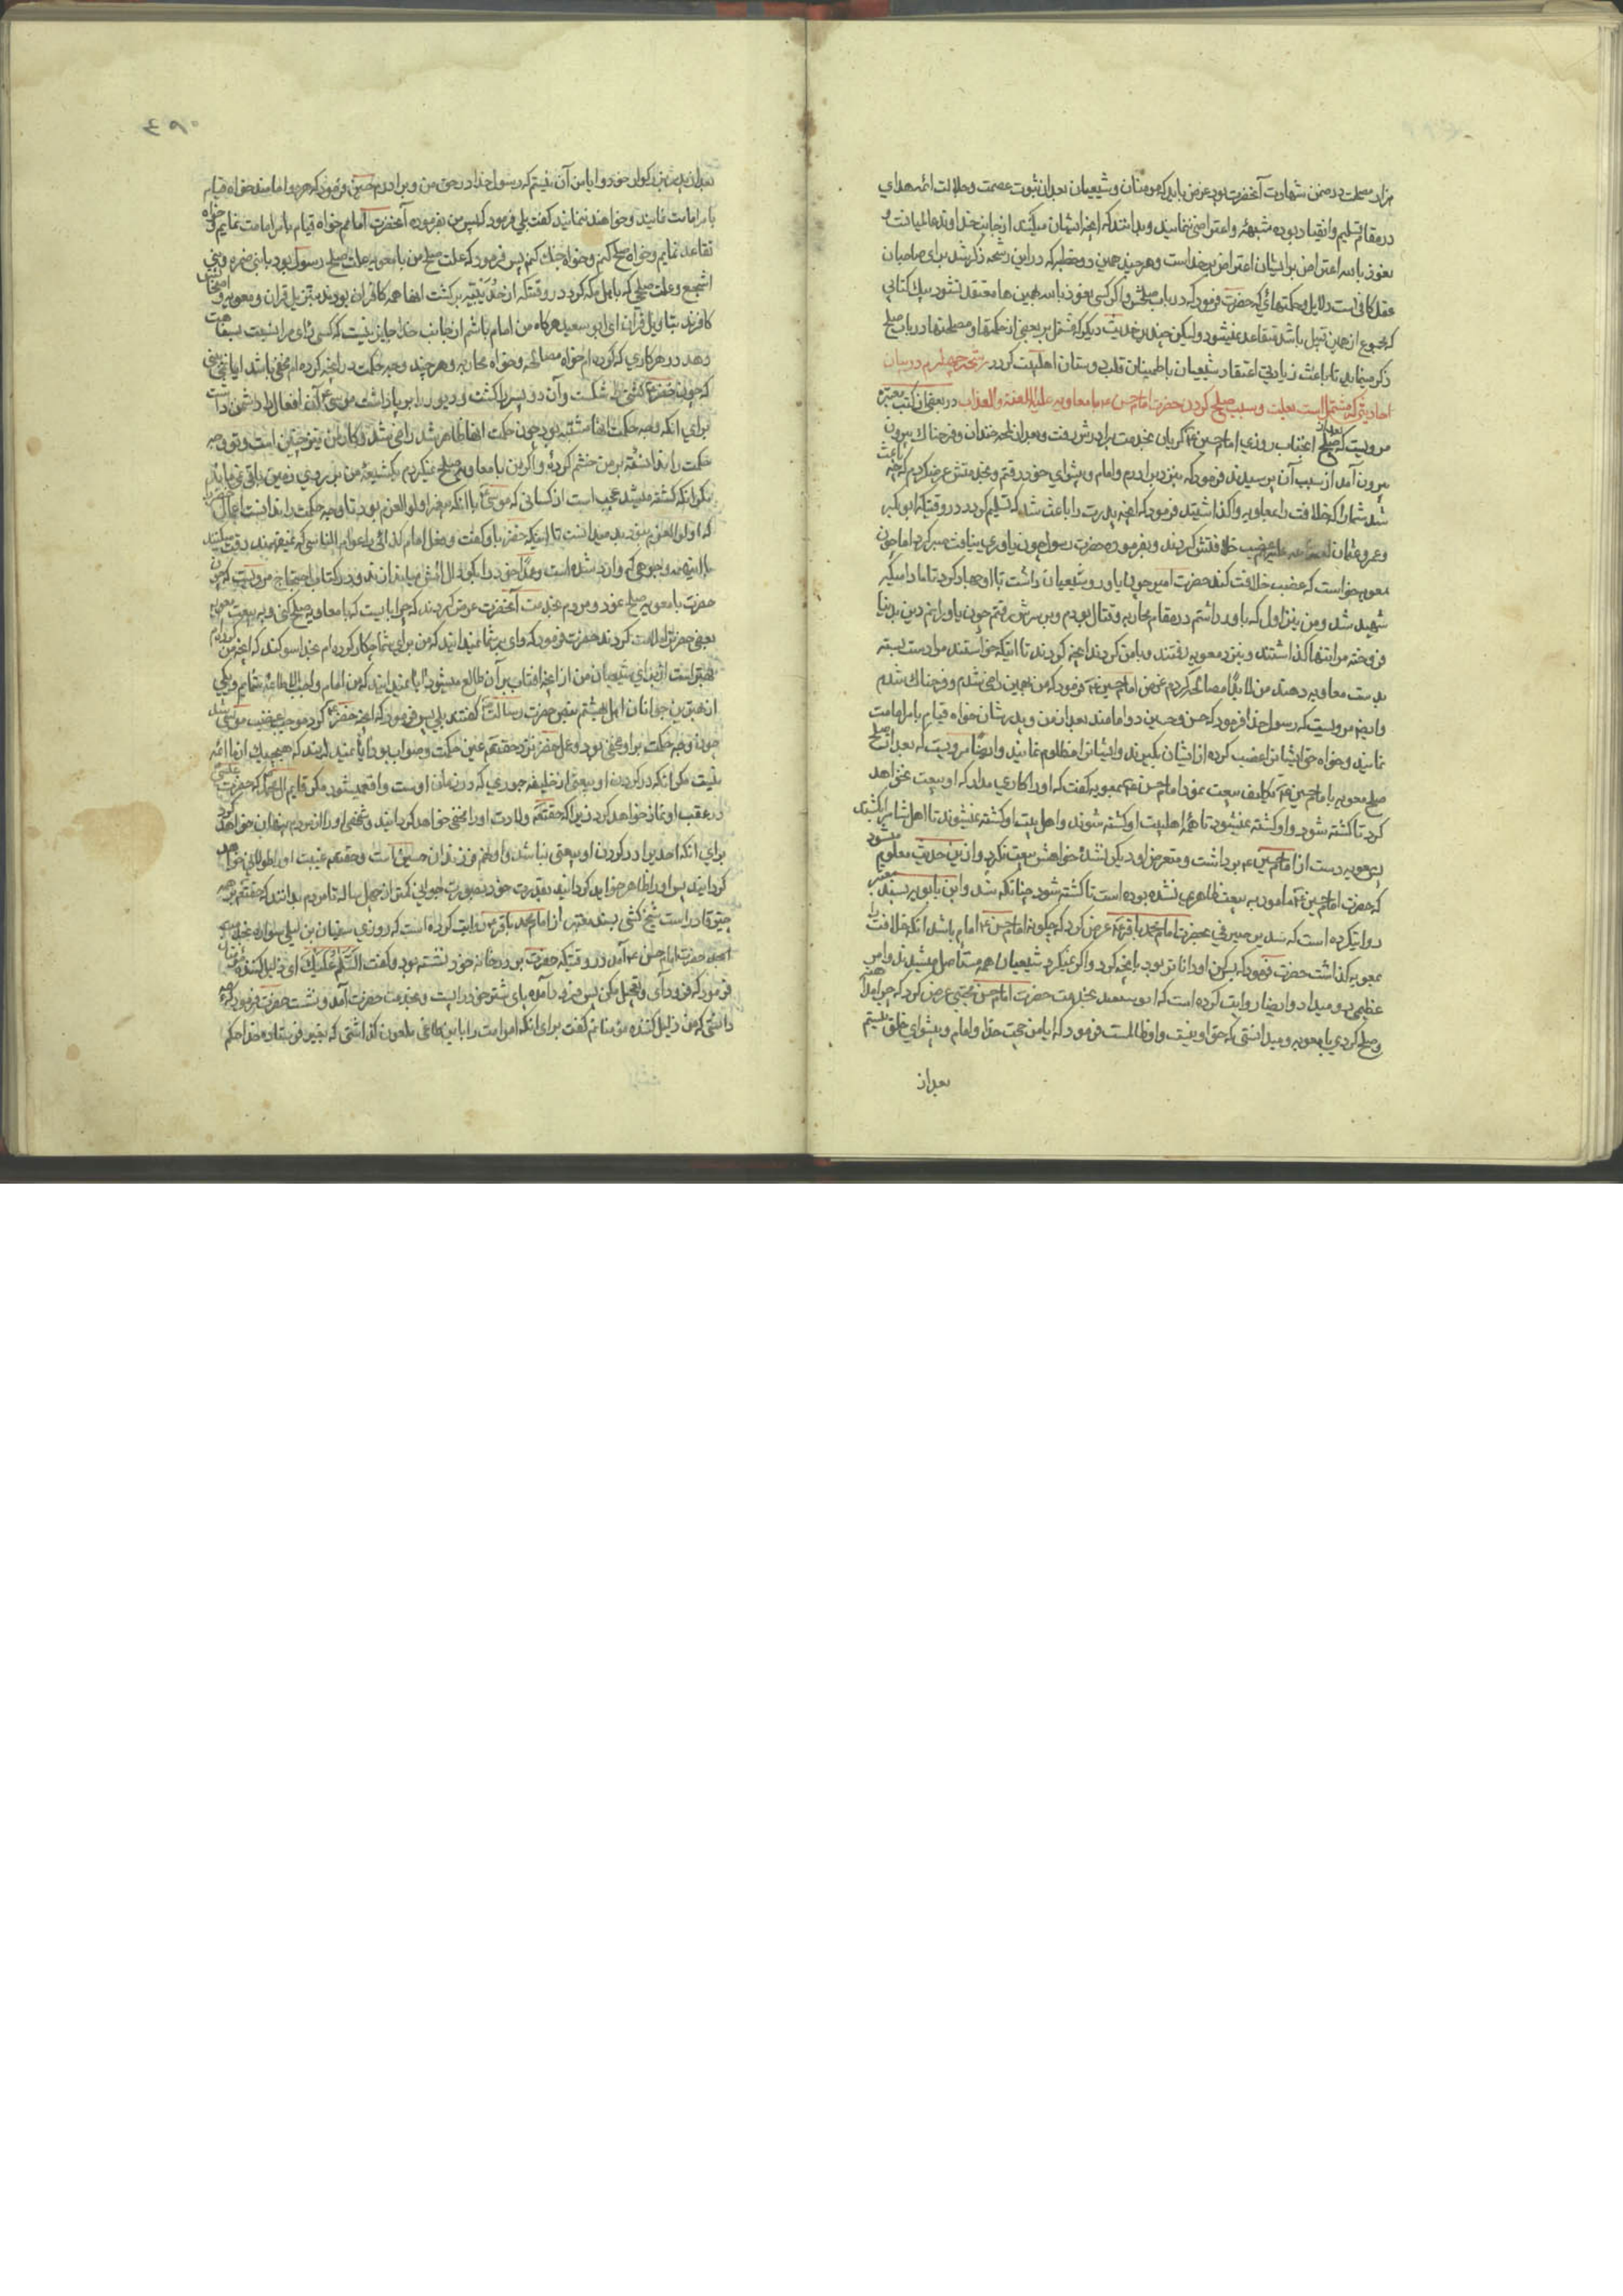 هزار مصلحت در ضمن شهادت آنحضرت بود غرض باید که مومنان و شیعیان بعد از ثبوت عصمت و جلالت ائمه هدای
در مقام تسلیم و انقیاد بوده شبهه و اعتراض ننمایید و بدانند که آنچه ایشان میکنند از جانب خداوند عالمیانست و
نعوذ بالله اعتراض بر ایشان اعتراض بر خداست و هر چند همین دو خطبه که در این رشحه ذکر شد برای صاحبان
عقل کافی است دلایل و حکمتهائی که حضرت فرمود که در باب صلحش و اگر کسی نعوذ بالله بهمین ها معتقد نشود بیک کتابی
که مجموع از همین قبیل باشد متقاعد نمیشود ولیکن چند بر حدیث دیگر که مشتمل بر بعضی از حکمتها و مصلحتها در باب صلح
ذکر مینماید تا باعث زیادتی اعتقاد شیعیان باطمینان قلب دوستان اهلبیت گردد رشحه چهارم در بیان
احادیثی که مشتمل است بعلت و سبب صلح کردن حضرت امام حسن ع با معاویه علیه اللعنة والعذاب در بعضی از کتب معتبره
مرویست که بعد از صلح آنجناب روزی امام حسین ع گریان بخدمت برادرش رفت و بعد از لمحه خندان و فرحناک بیرون
بیرون آمد از سبب آن پرسیدند فرمود که بنزد برادرم و امام و پیشوای خود رفتم و بخدمتش عرض کردم که چه باعث
شد شما را که خلافت را بمعاویه واگذاشتید فرمود که آنچه پدرت را باعث شد که تسلیم کرد در وقتیکه ابو بکر
و عمر و عثمان غصب خلافتش کردند و بفرموده حضرت رسول چون یاوری نیافت صبر کرد اما چون
معویه خواست که غصب خلافت کند حضرت امیر چون یاور و شیعیان داشت با او جهاد کرد تا مادامیکه
شهید شد و من نیز اول که یاور داشتم در مقام محاربه و قتال بودم و بر سرش رفتم چون یاورانم دین بدنیا
فروخته مرا تنها گذاشتند و بنزد معویه رفتند و با من کردند آنچه کردند تا اینکه خواستند مرا دست بسته
بدست معاویه دهند من لابدا مصالحه کردم غرض امام حسین ع فرمود که من بهمین راضی شدم و فرحناک شدم
و ایضا مرویست که رسول خدا فرمود که حسن و حسین دو امامند بعد از من و پدرشان خواه قیام بامر امامت
نمایند و خواه حق ایشانرا غصب کرده از ایشان بگیرند و ایشانرا مظلوم نمایند و ایضا مرویست که بعد از صلح
صلح معویه با امام حسین ع تکلیف بیعت نمود امام حسن ع بمعویه گفت که او را کاری مدار که او بیعت نخواهد
کرد تا کشته شود و او کشته نمیشود تا همه اهلبیت او کشته شوند و اهل بیت او کشته نمیشوند تا اهل شام را بکشند
پس معویه دست از امام حسین ع برداشت و متعرض او دیگر نشد و خواهش بیعت نکرد و از این حدیث معلوم میشود
که حضرت امام حسین ع مامور به بیعت ظاهری نشده بوده است تا کشته شود چنانکه شد و ابن بابویه بسند معتبر
روایتکرده است که سدیر صیرفی بحضرت امام محمد باقر ع عرض کرد که چگونه امام حسن ع امام باشد آنکه خلافت را
بمعویه گذاشت حضرت فرمود که بس کن او داناتر بود بآنچه کرد و اگر نمیکرد شیعیان همه مستاصل میشدند و امر
عظیمی رو میداد و ایضا روایت کرده است که ابو سعید بخدمت حضرت امام حسن مجتبی عرض کرد که چرا مداهنه
و صلح کردی با معویه و میدانستی که حق او نیست و او ظالمست فرمود که آیا من حجت خدا و امام و پیشوای خلق نیستم
بعد از
۴۹۰
بعد از پدر بزرگوار خود و آیا من آن نیستم که رسول خدا در حق من و برادرم حسین فرمود که هر دو امامند خواه قیام
بامر امامت نمایند و خواهند ننمایند گفت بلی فرمود که پس من بفرموده آنحضرت امامم خواه قیام بامر امامت نمایم و خواه
تقاعد نمایم و خواه صلح کنم و خواه جنگ کنم پس فرمود که علت صلح من با معویه علت صلح رسول بود با بنی ضمره و بنی
اشجع و علت صلحی که با اهل مکه کرد در وقتیکه از حدیبیه برگشت آنها همه کافران بودند بتنزیل قران و معویه و اصحابش
کافرند بتاویل قران ای ابو سعید هر گاه من امام باشم از جانب خدا جایز نیست که کسی رای مرا نسبت بسفاهت
دهد در هر کاری که کرده ام خواه مصالحه و خواه محاربه و هر چند وجه حکمت در آنچه کرده ام مخفی باشد آیا نمی بینی
که چون خضر ع کشتی را شکست و آن دو پسر را کشت و دیوار را بر پا داشت موسی ع آن افعال را دشمن داشت
برای آنکه وجه حکمت آنها مشتبه بود چون حکمت آنها ظاهر شد راضی شد و کار من نیز چنین است و تو وجه
حکمت را ندانسته بر من خشم کرده و اگر من با معاویه صلح نمیکردم یکشیعه من بر روی زمین باقی نمی ماند
مگر آنکه کشته میشد عجب است از کسانی که موسی ع با آنکه پیغمبر اولوالعزم بود تا وجه حکمت را ندانست اعمال
که اولوالعزم نبود بد میدانست تا اینکه خضر باو گفت و فعل امام
حضرت با معویه صلح نمود و مردم بخدمت آنحضرت عرض کردند که چرا بایست که با معاویه صلح کنی و به بیعت
بعضی حضرترا ملامت کردند حضرت فرمود که وای بر شما نمیدانید که من برای شما چکار کرده ام بخدا سوگند که آنچه من کردم
بهتر است از برای شیعیان من از آنچه آفتاب بر آن طالع میشود آیا نمیدانید که من امام واجب الاطاعه شمایم و یکی
از بهترین جوانان اهل بهشتم بنص حضرت رسالت گفتند بلی پس فرمود که آنچه خضر ع کرد موجب غضب موسی شد
چون وجه حکمت بر او مخفی بود و عمل خضر نزد حقتعالی عین حکمت و صواب بود آیا نمیدانید که هیچیک از ما ائمه
نیست مگر آنکه در گردن او بیعتی از خلیفه جوری که در زمان اوست واقع میشود مگر قایم آل محمد که حضرت عیسی
در عقب او نماز خواهد کرد زیرا که حقتعالی ولادت او را مخفی خواهد گردانید و شخص او را از مردم پنهان خواهد کرد
برای آنکه احدی را در گردن او بیعتی نباشد و او نهم فرزندان حسین است و حقتعالی غیبت او را طولانی خواهد
گردانید پس او را ظاهر خواهد گردانید بقدرت خود بصورت جوانی کمتر از چهل ساله تا مردم بدانند که حقتعالی بر همه
چیز قادر است شیخ کشی بسند معتبر از امام محمد باقر ع روایت کرده است که روزی سفیان بن لیلی سواره بخدمت
حضرت امام حسن ع آمد در وقتیکه حضرت بر در خانه خود نشسته بود و گفت السلام علیک ای ذلیل کننده مومنان
فرمود که فرود آی و تعجیل مکن پس فرود آمده پای شتر خود را بست و بخدمت حضرت آمد و نشست حضرت فرمود که چه
دانستی که من ذلیل کننده مومنانم گفت برای آنکه امر امت را با این طاغی ملعون گذاشتی که بغیر فرستاده خدا حکم